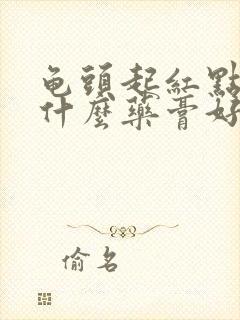 龟頭起紅點
什麼藥膏好
偷名